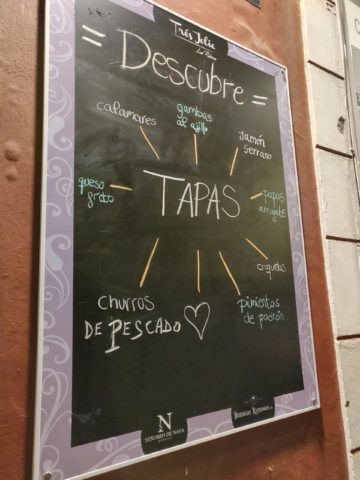 Très Jolie
= Descubre =
calamares
gambas
al ajillo
jamón
serrano
queso
frito
TAPAS
papas
arrugadas
croquetas
churros
DE PESCADO
pimientos
de padrón
N
SEÑORÍO DE NAVA